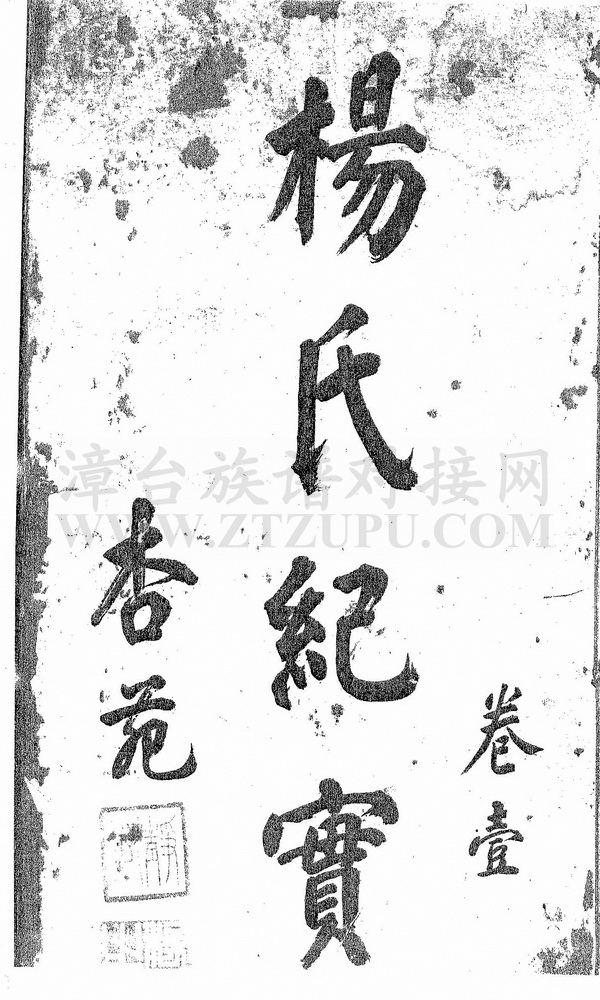 卷壹
楊氏紀實
杏苑
漳台族谱对接网
WWW.ZTZUPU.COM